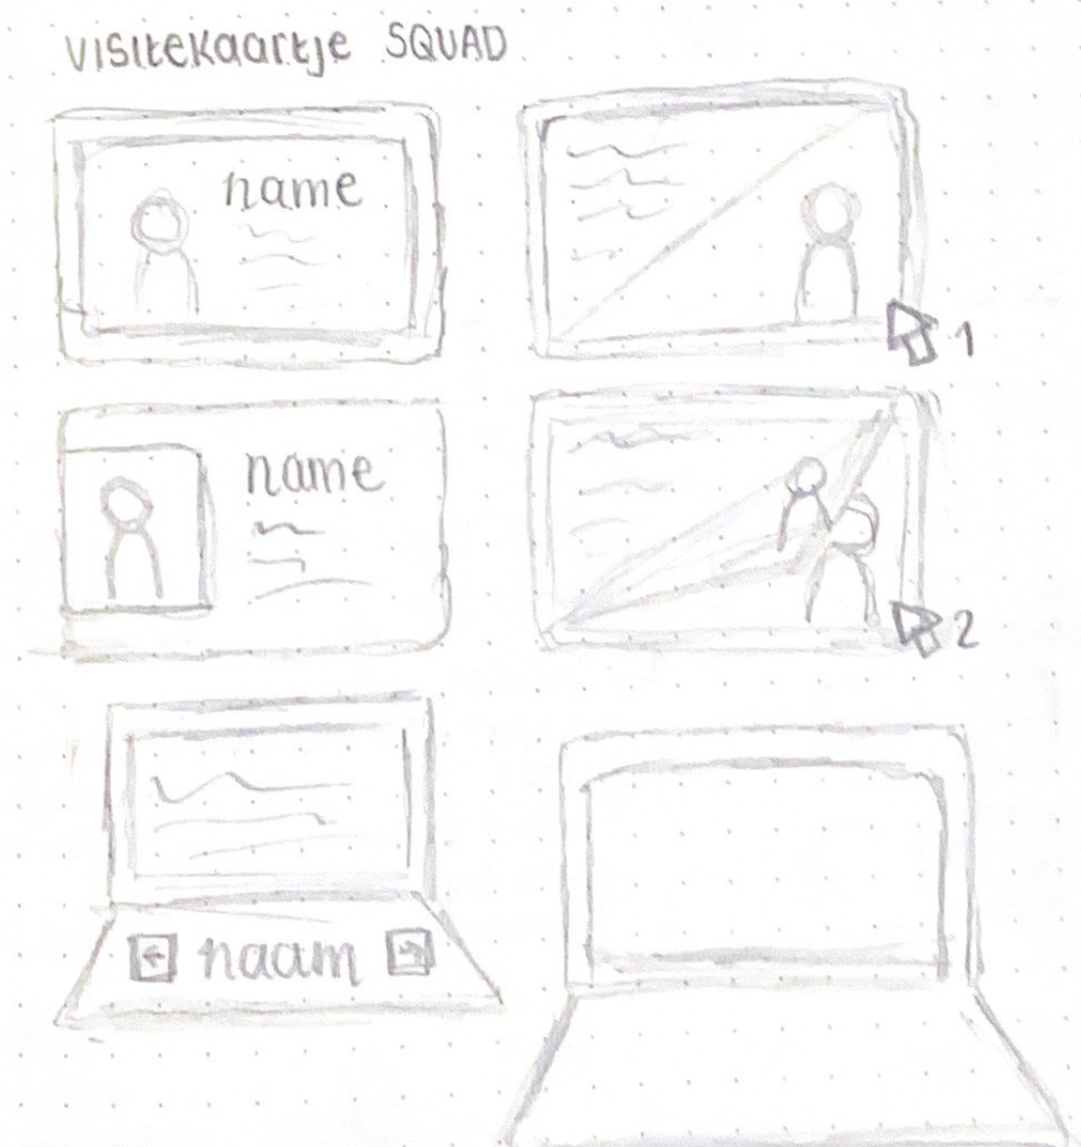 visitekaartje SQUAD
name
1
name
2
naam